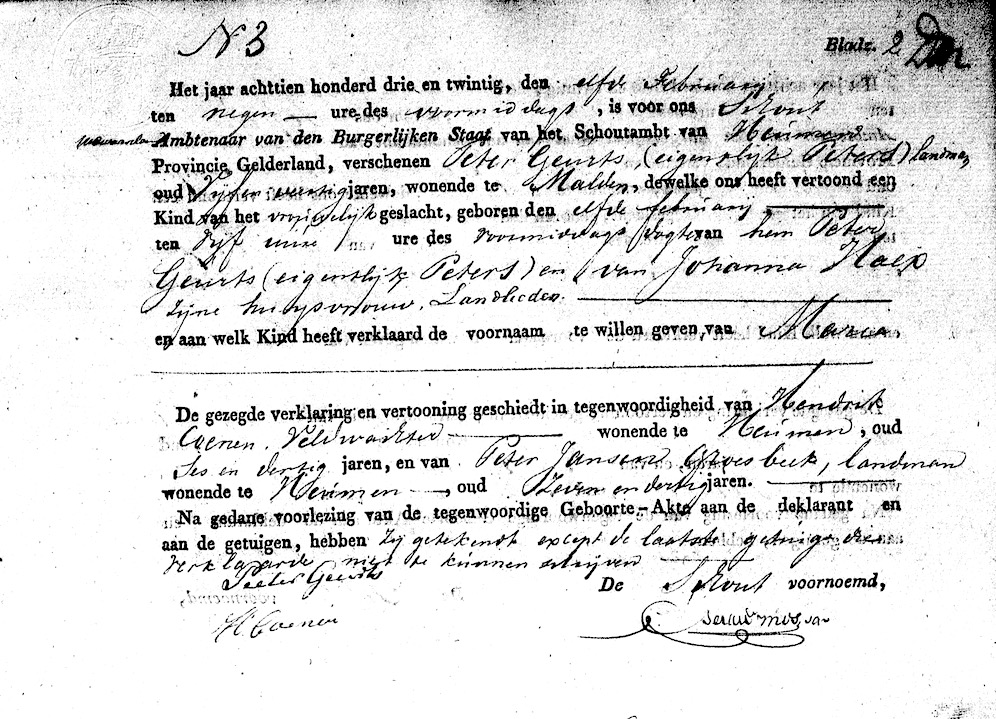 N 3 Bladz. 2
Het jaar achttien honderd drie en twintig, den elfde Februarij
ten negen ure des voormiddags, is voor ons Schout
Ambtenaar van den Burgerlijken Staat van het Schoutambt van Heumen
Provincie Gelderland, verschenen Peter Geurts (eigentlijk Peters) landman
oud Vijf en veertig jaren, wonende te Malden, dewelke ons heeft vertoond een
Kind van het vrouwelijk geslacht, geboren den elfde februarij
ten vijf ure ure des voormiddags van hem Peter
Geurts (eigentlijk Peters) en van Johanna Haex
zijne huijsvrouw, Landlieden.
en aan welk Kind heeft verklaard de voornaam te willen geven van Maria.
De gezegde verklaring en vertooning geschiedt in tegenwoordigheid van Hendrik
Coenen, Veldwachter wonende te Heumen, oud
ses en dertig jaren, en van Peter Jansen Groesbeek, landman
wonende te Heumen, oud Zeven en dertig jaren.
Na gedane voorlezing van de tegenwoordige Geboorte-Akte aan de deklarant en
aan de getuigen, hebben zij getekend except de laatste getuige die
verklaarde niet te kunnen schrijven
Peeter Geurts
De Schout voornoemd,
H. Coenen